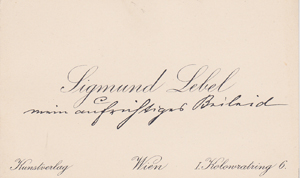 Sigmund Lebel
mein aufrichtiges Beileid
Kunstverlag Wien I. Kolowratring 6.